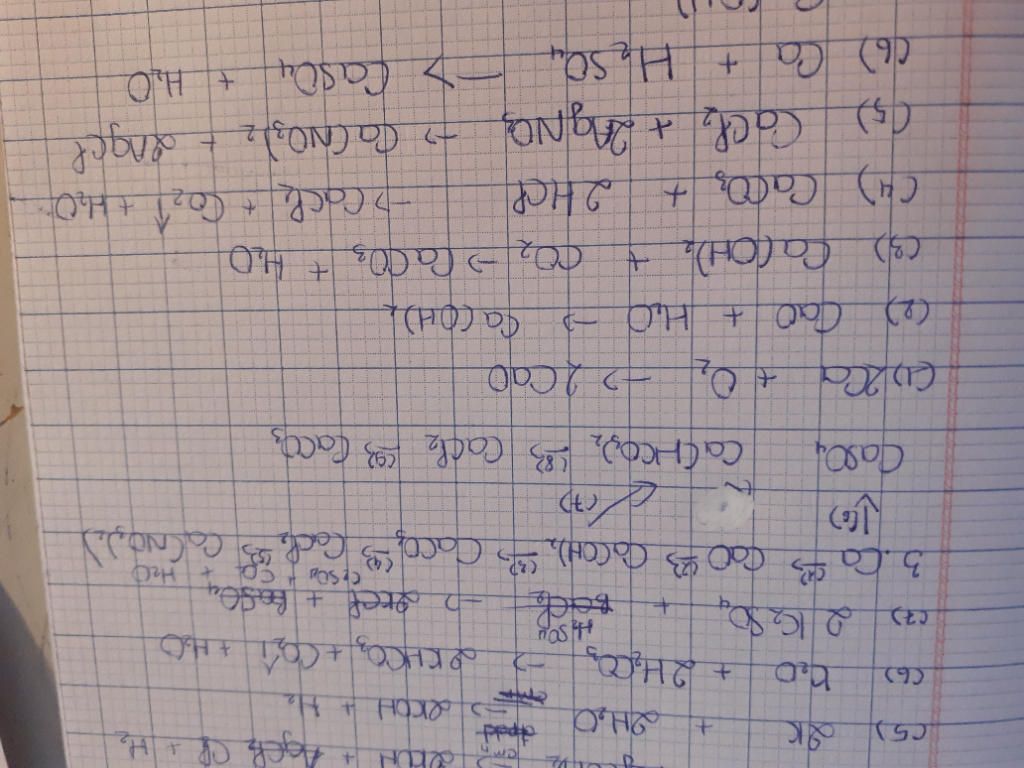 2KOH + AgCl₂ Cl + H₂
(5) 2K + 2H₂O → 2KOH + H₂
(6) K₂O + 2H₂CO₃ → 2KHCO₃ + CO₂↑ + H₂O
(7) 2K₂SO₄ + H₂SO₄ →
3. Ca (1)→ CaO (2)→ Ca(OH)₂ (3)→ CaCO₃ (4)→ CaCl₂ (5)→ Ca(NO₃)₂)
↓(6) (7)
CaSO₄ Ca(HCO₃)₂ (8)→ CaCl₂ (9)→ CaCO₃
(1) 2Ca + O₂ → 2CaO
(2) CaO + H₂O → Ca(OH)₂
(3) Ca(OH)₂ + CO₂ → CaCO₃ + H₂O
(4) CaCO₃ + 2HCl → CaCl₂ + CO₂↑ + H₂O
(5) CaCl₂ + 2AgNO₃ → Ca(NO₃)₂ + 2AgCl
(6) Ca + H₂SO₄ → CaSO₄ + H₂O